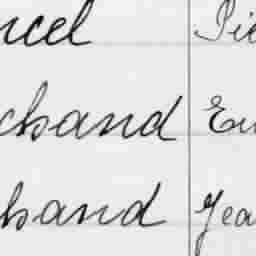 ncel Pie
chand Eu
hand Jea